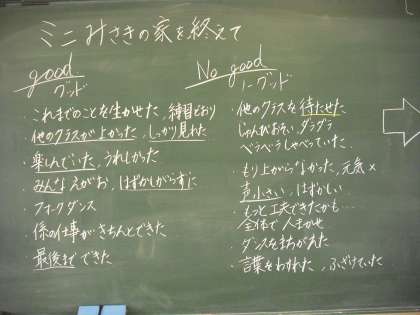 ミニみさきの家を終えて
good
グッド
・これまでのことを生かせた、練習どおり
他のクラスが上がった、しっかり見れた
・楽しんでいた、うれしかった
・みんなえがお、はずかしがらずに
・フォークダンス
・係の仕事がきちんとできた
・最後までできた
No good
ノーグッド
・他のクラスを待たせた
じゅんびおそい、ダラダラ
ペラペラしゃべっていた
・もり上がらなかった、元気×
声小さい、はずかしい
・もっと工夫できたかも…
全体で人まかせ
・ダンスをまちがえた
・言葉をわすれた、ふざけていた